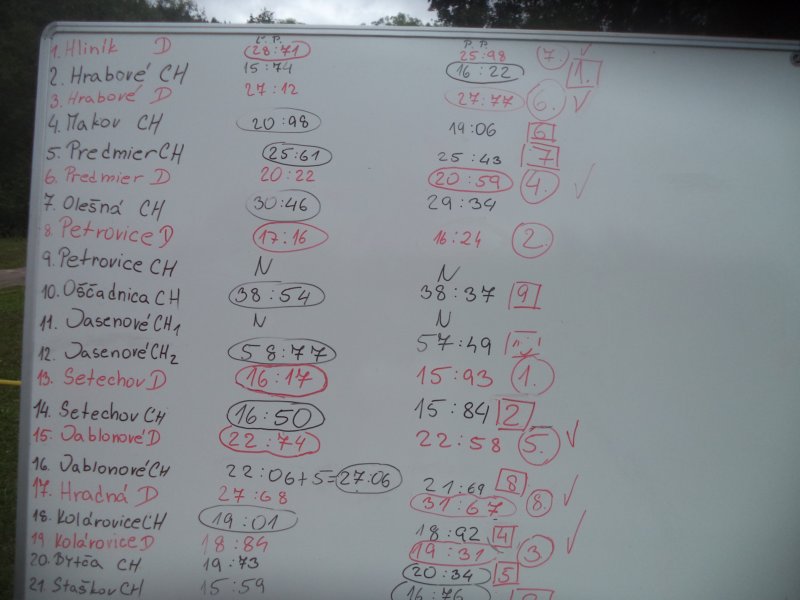 Ľ.P. P.P.
1. Hliník D 28:71 25:98 7. ✓
2. Hrabové CH 15:74 16:22 1.
3. Hrabové D 27:12 27:77 6. ✓
4. Makov CH 20:98 19:06 6
5. Predmier CH 25:61 25:43 7
6. Predmier D 20:22 20:59 4. ✓
7. Olešná CH 30:46 29:34
8. Petrovice D 17:16 16:24 2.
9. Petrovice CH N N
10. Oščadnica CH 38:54 38:37 9
11. Jasenové CH1 N N
12. Jasenové CH2 58:77 57:49
13. Setechov D 16:17 15:93 1.
14. Setechov CH 16:50 15:84 2
15. Jablonové D 22:74 22:58 5. ✓
16. Jablonové CH 22:06+5=27:06 21:69 8
17. Hradná D 27:68 31:67 8. ✓
18. Kolárovice CH 19:01 18:92 4
19. Kolárovice D 18:84 19:31 3. ✓
20. Bytča CH 19:73 20:34 5
21. Staškov CH 15:59 16:76